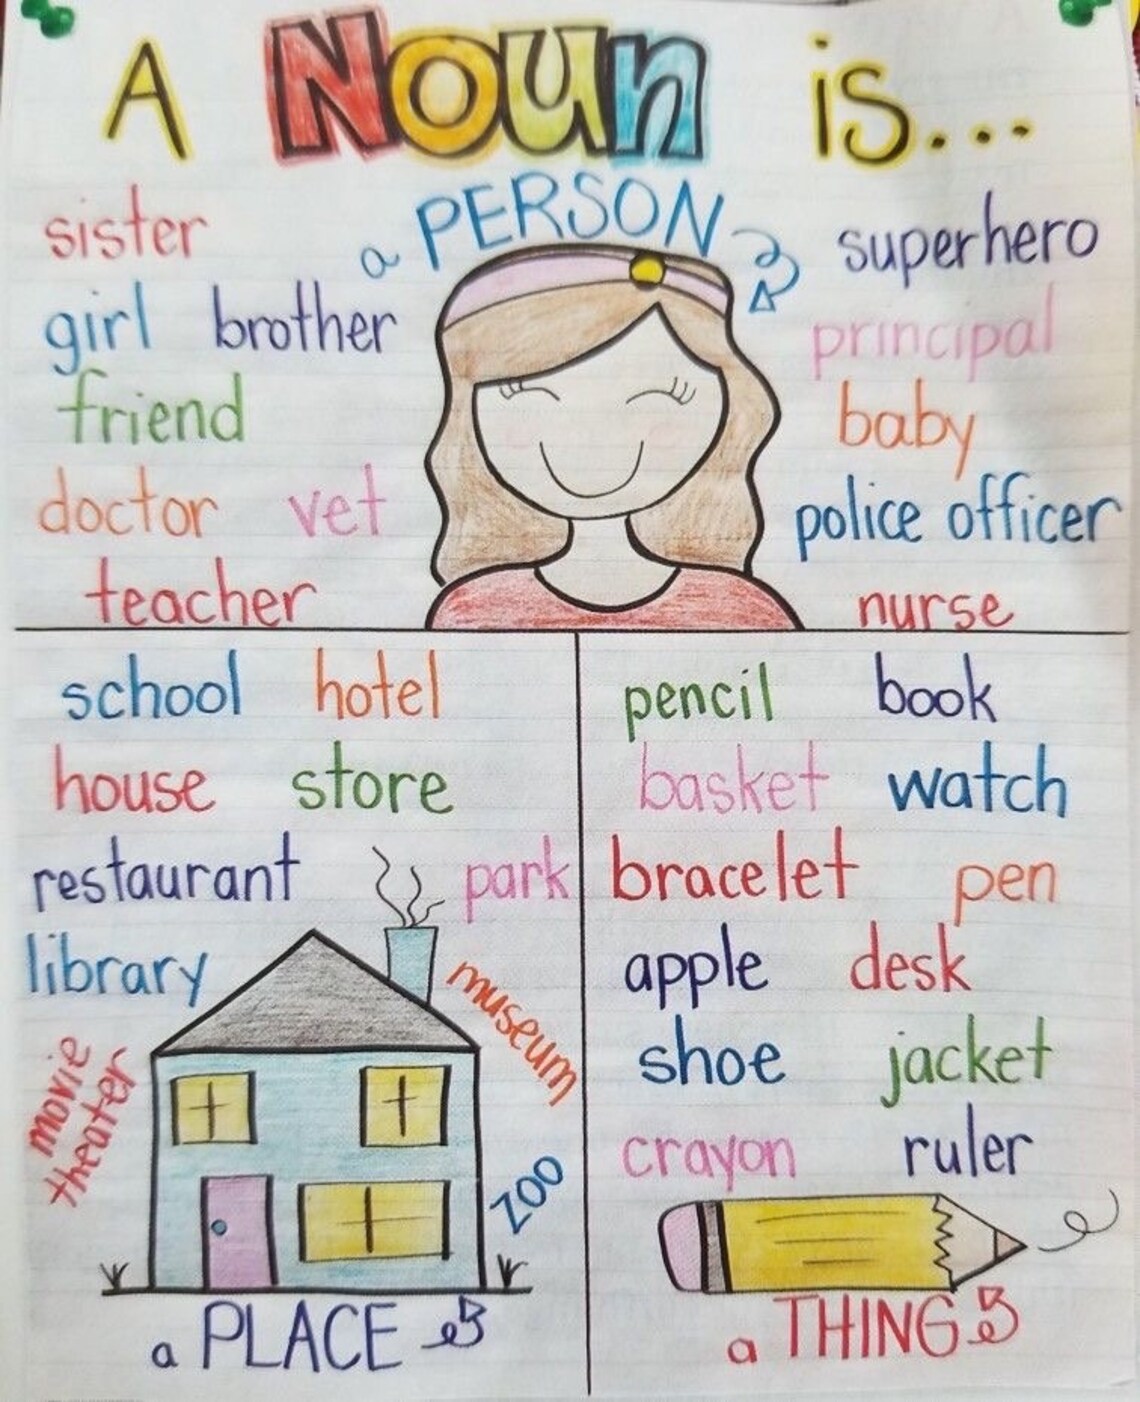 A Noun is...
a PERSON
sister
girl brother
friend
doctor vet
teacher
superhero
principal
baby
police officer
nurse
school hotel
house store
restaurant park
library
museum
movie
theater
zoo
a PLACE
pencil book
basket watch
bracelet pen
apple desk
shoe jacket
crayon ruler
a THING